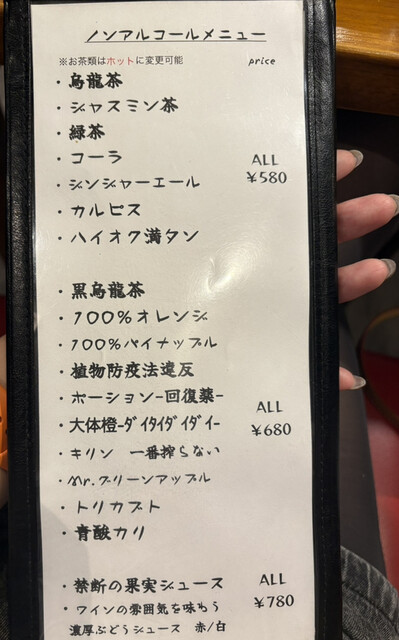 ノンアルコールメニュー
※お茶類はホットに変更可能 price
・烏龍茶
・ジャスミン茶
・緑茶
・コーラ
ALL
・ジンジャーエール
¥580
・カルピス
・ハイオク満タン
・黒烏龍茶
・100%オレンジ
・100%パイナップル
・植物防疫法違反
・ポーション-回復薬-
ALL
・大体橙-ダイタイダイダイ-
¥680
・キリン 一番搾らない
・Mr.グリーンアップル
・トリカブト
・青酸カリ
・禁断の果実ジュース ALL
・ワインの雰囲気を味わう ¥780
濃厚ぶどうジュース 赤/白